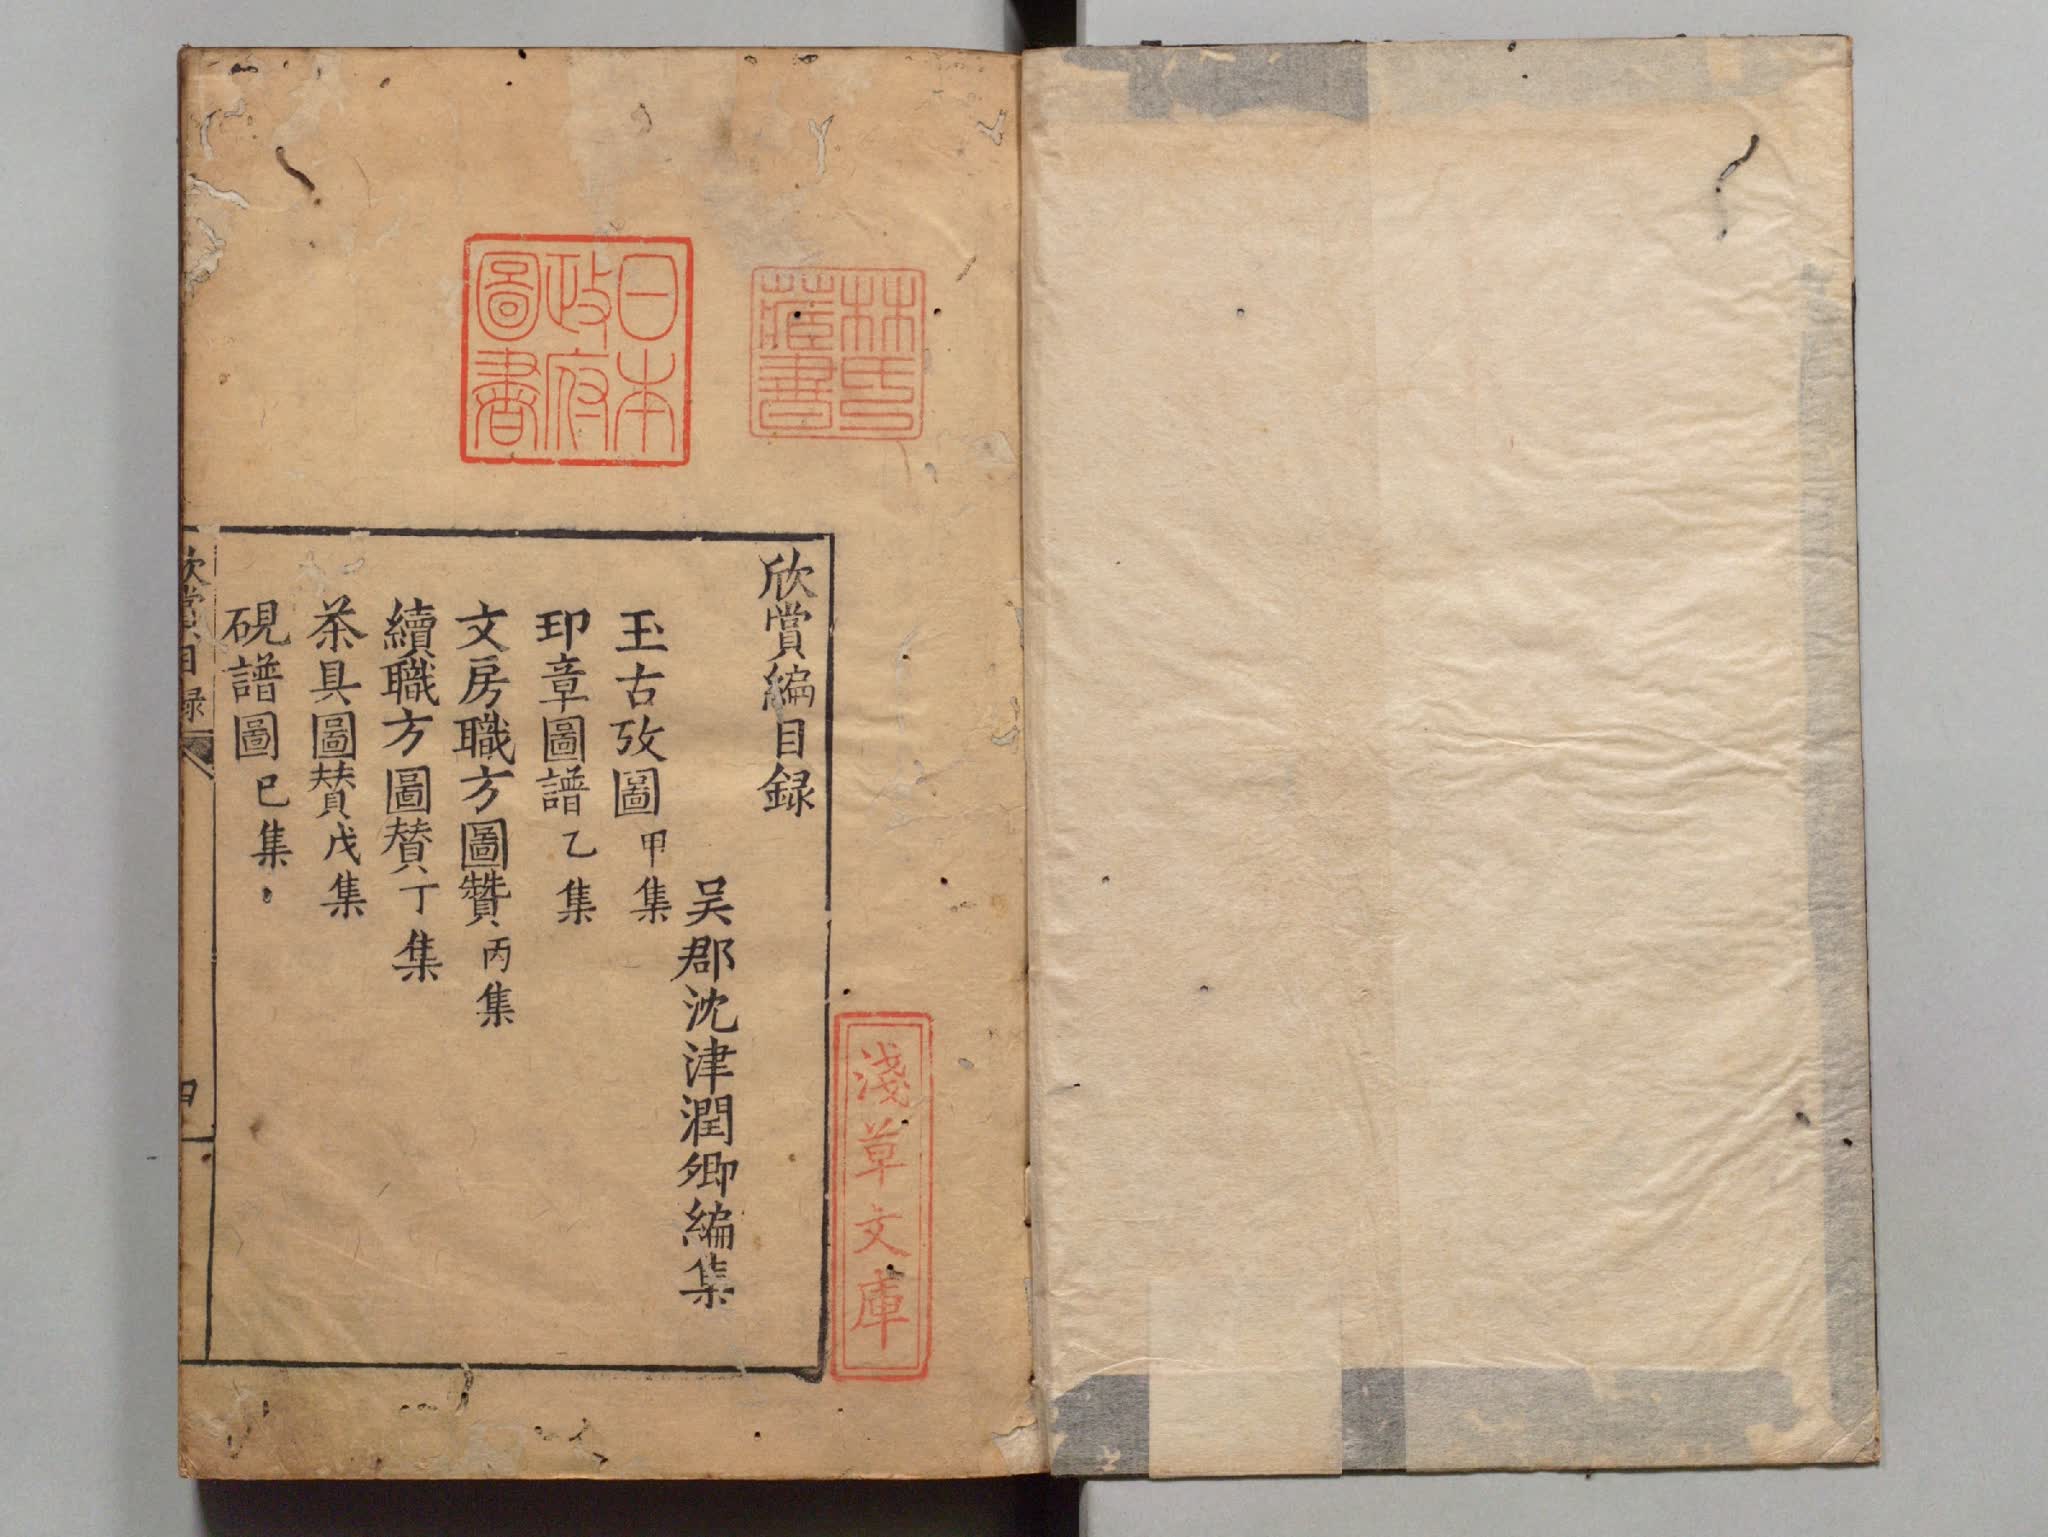 林氏
藏書
日本
政府
圖書
淺草文庫
欣賞編目録
吴郡沈津潤卿編集
玉古攷圖甲集
印章圖譜乙集
文房職方圖贊丙集
續職方圖賛丁集
茶具圖賛戊集
硯譜圖已集
欣賞目録